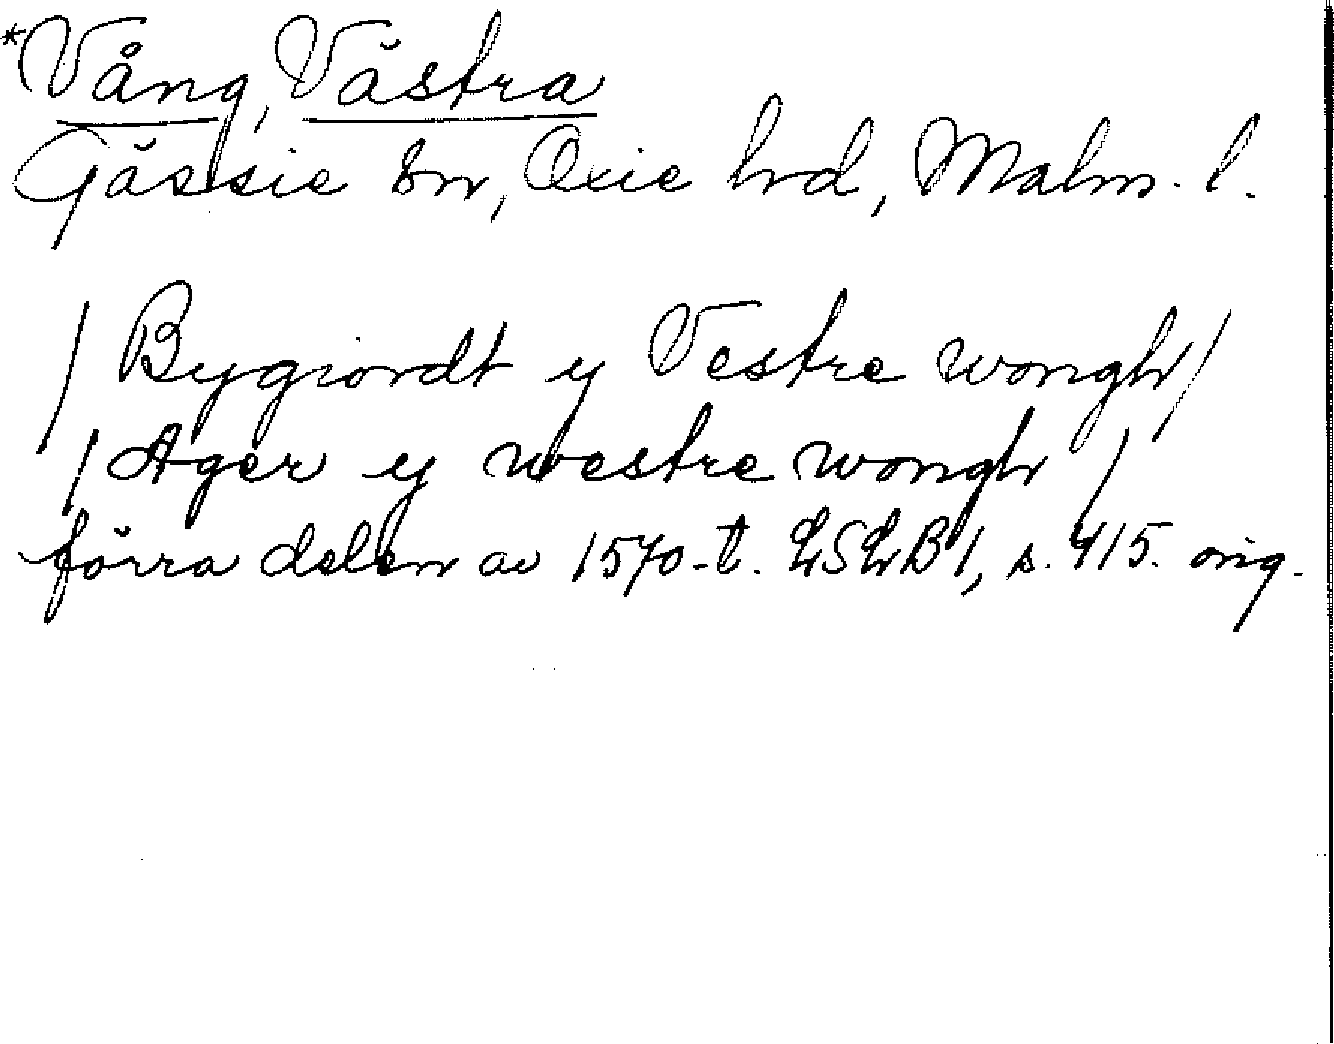 *Vång, Västra
Gässie sn, Oxie hrd, Malm. l.
/ Bygiordt y Vestre wongh /
/ Ager y westre wongh /
förra delen av 1570-t. LSLB 1, s. 415. orig.